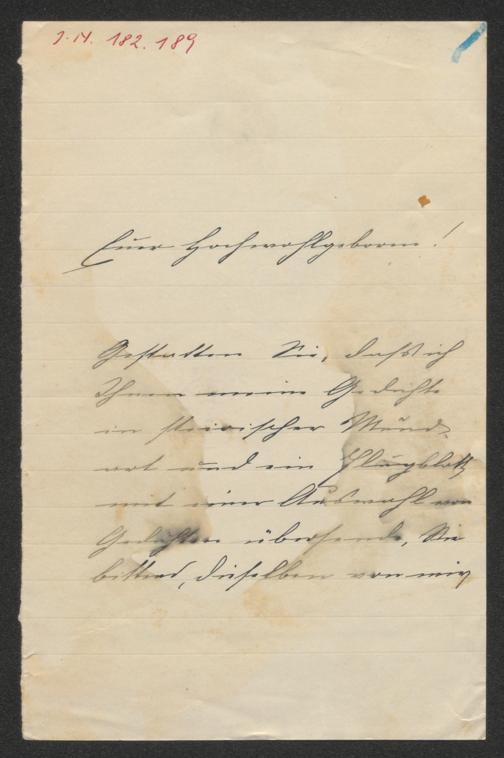 I. N. 182.189
Euer Hochwohlgeboren!
Gestatten Sie, daß ich
Ihnen meine Gedichte
in steirischer Mund-
art und ein Flugblatt
mit einer Auswahl von
Gedichten übersende, Sie
bittend, dieselben von mir